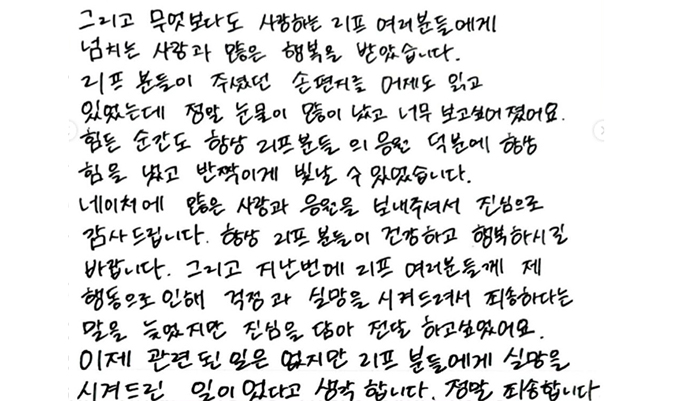 그리고 무엇보다도 사랑하는 리프 여러분들에게
넘치는 사랑과 많은 행복을 받았습니다.
리프 분들이 주셨던 손편지를 어제도 읽고
있었는데 정말 눈물이 많이 났고 너무 보고싶어 졌어요.
힘든 순간도 항상 리프분들 의 응원 덕분에 항상
힘을 냈고 반짝이게 빛날 수 있었습니다.
네이처에 많은 사랑과 응원을 보내주셔서 진심으로
감사드립니다. 항상 리프 분들이 건강하고 행복하시길
바랍니다. 그리고 지난번에 리프 여러분들께 제
행동으로 인해 걱정 과 실망을 시켜드려서 죄송하다는
말을 늦었지만 진심을 담아 전달 하고싶었어요.
이제 관련 된 일은 없지만 리프 분들에게 실망을
시켜드린 일이 었다고 생각 합니다. 정말 죄송합니다